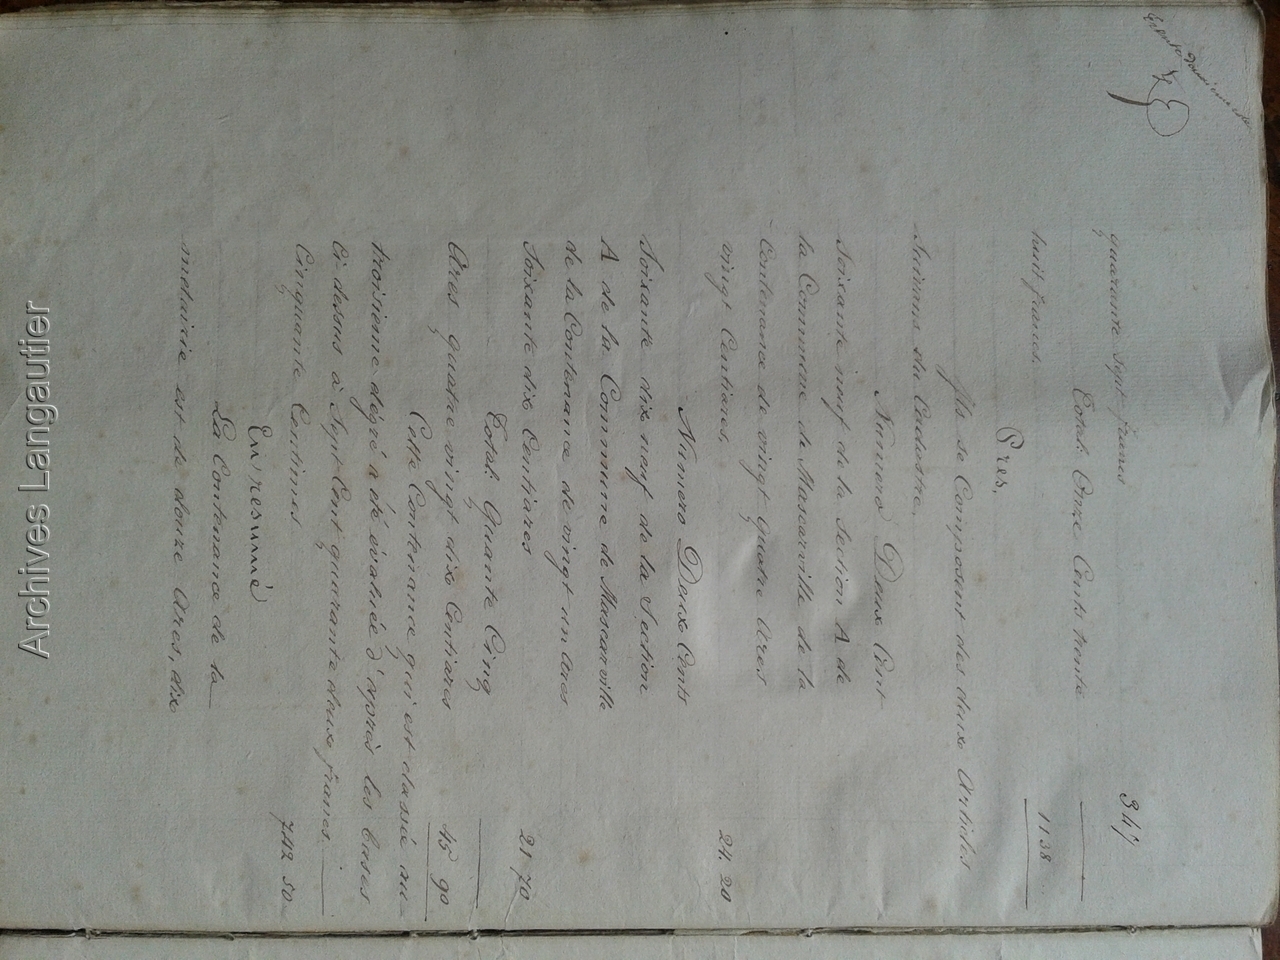 quarante sept francs 347
Total: Onze Cents trente
huit francs. 1138
Prés.
Ils se Composent des deux Articles
Suivans du Cadastre.
Numero Deux Cent
Soixante neuf de la Section A de
la Commune de Mascarville de la
Contenance de vingt quatre Ares
vingt Centiares. 24. 20
Numero Deux Cents
Soixante dix neuf de la Section
A de la Commune de Mascarville
de la Contenance de vingt un Ares
Soixante dix Centiares 21 70
Total: Quante Cinq
Ares quatre vingt dix Centiares 45 90
Cette Contenance qui est classée au
troisieme dégré a été évaluée d'après les bases
Ci dessus à Sept Cent quarante deux francs.
Cinquante Centimes 742 50
En resumé
La Contenance de la
métairie est de douze Ares, dix
Archives Langautier